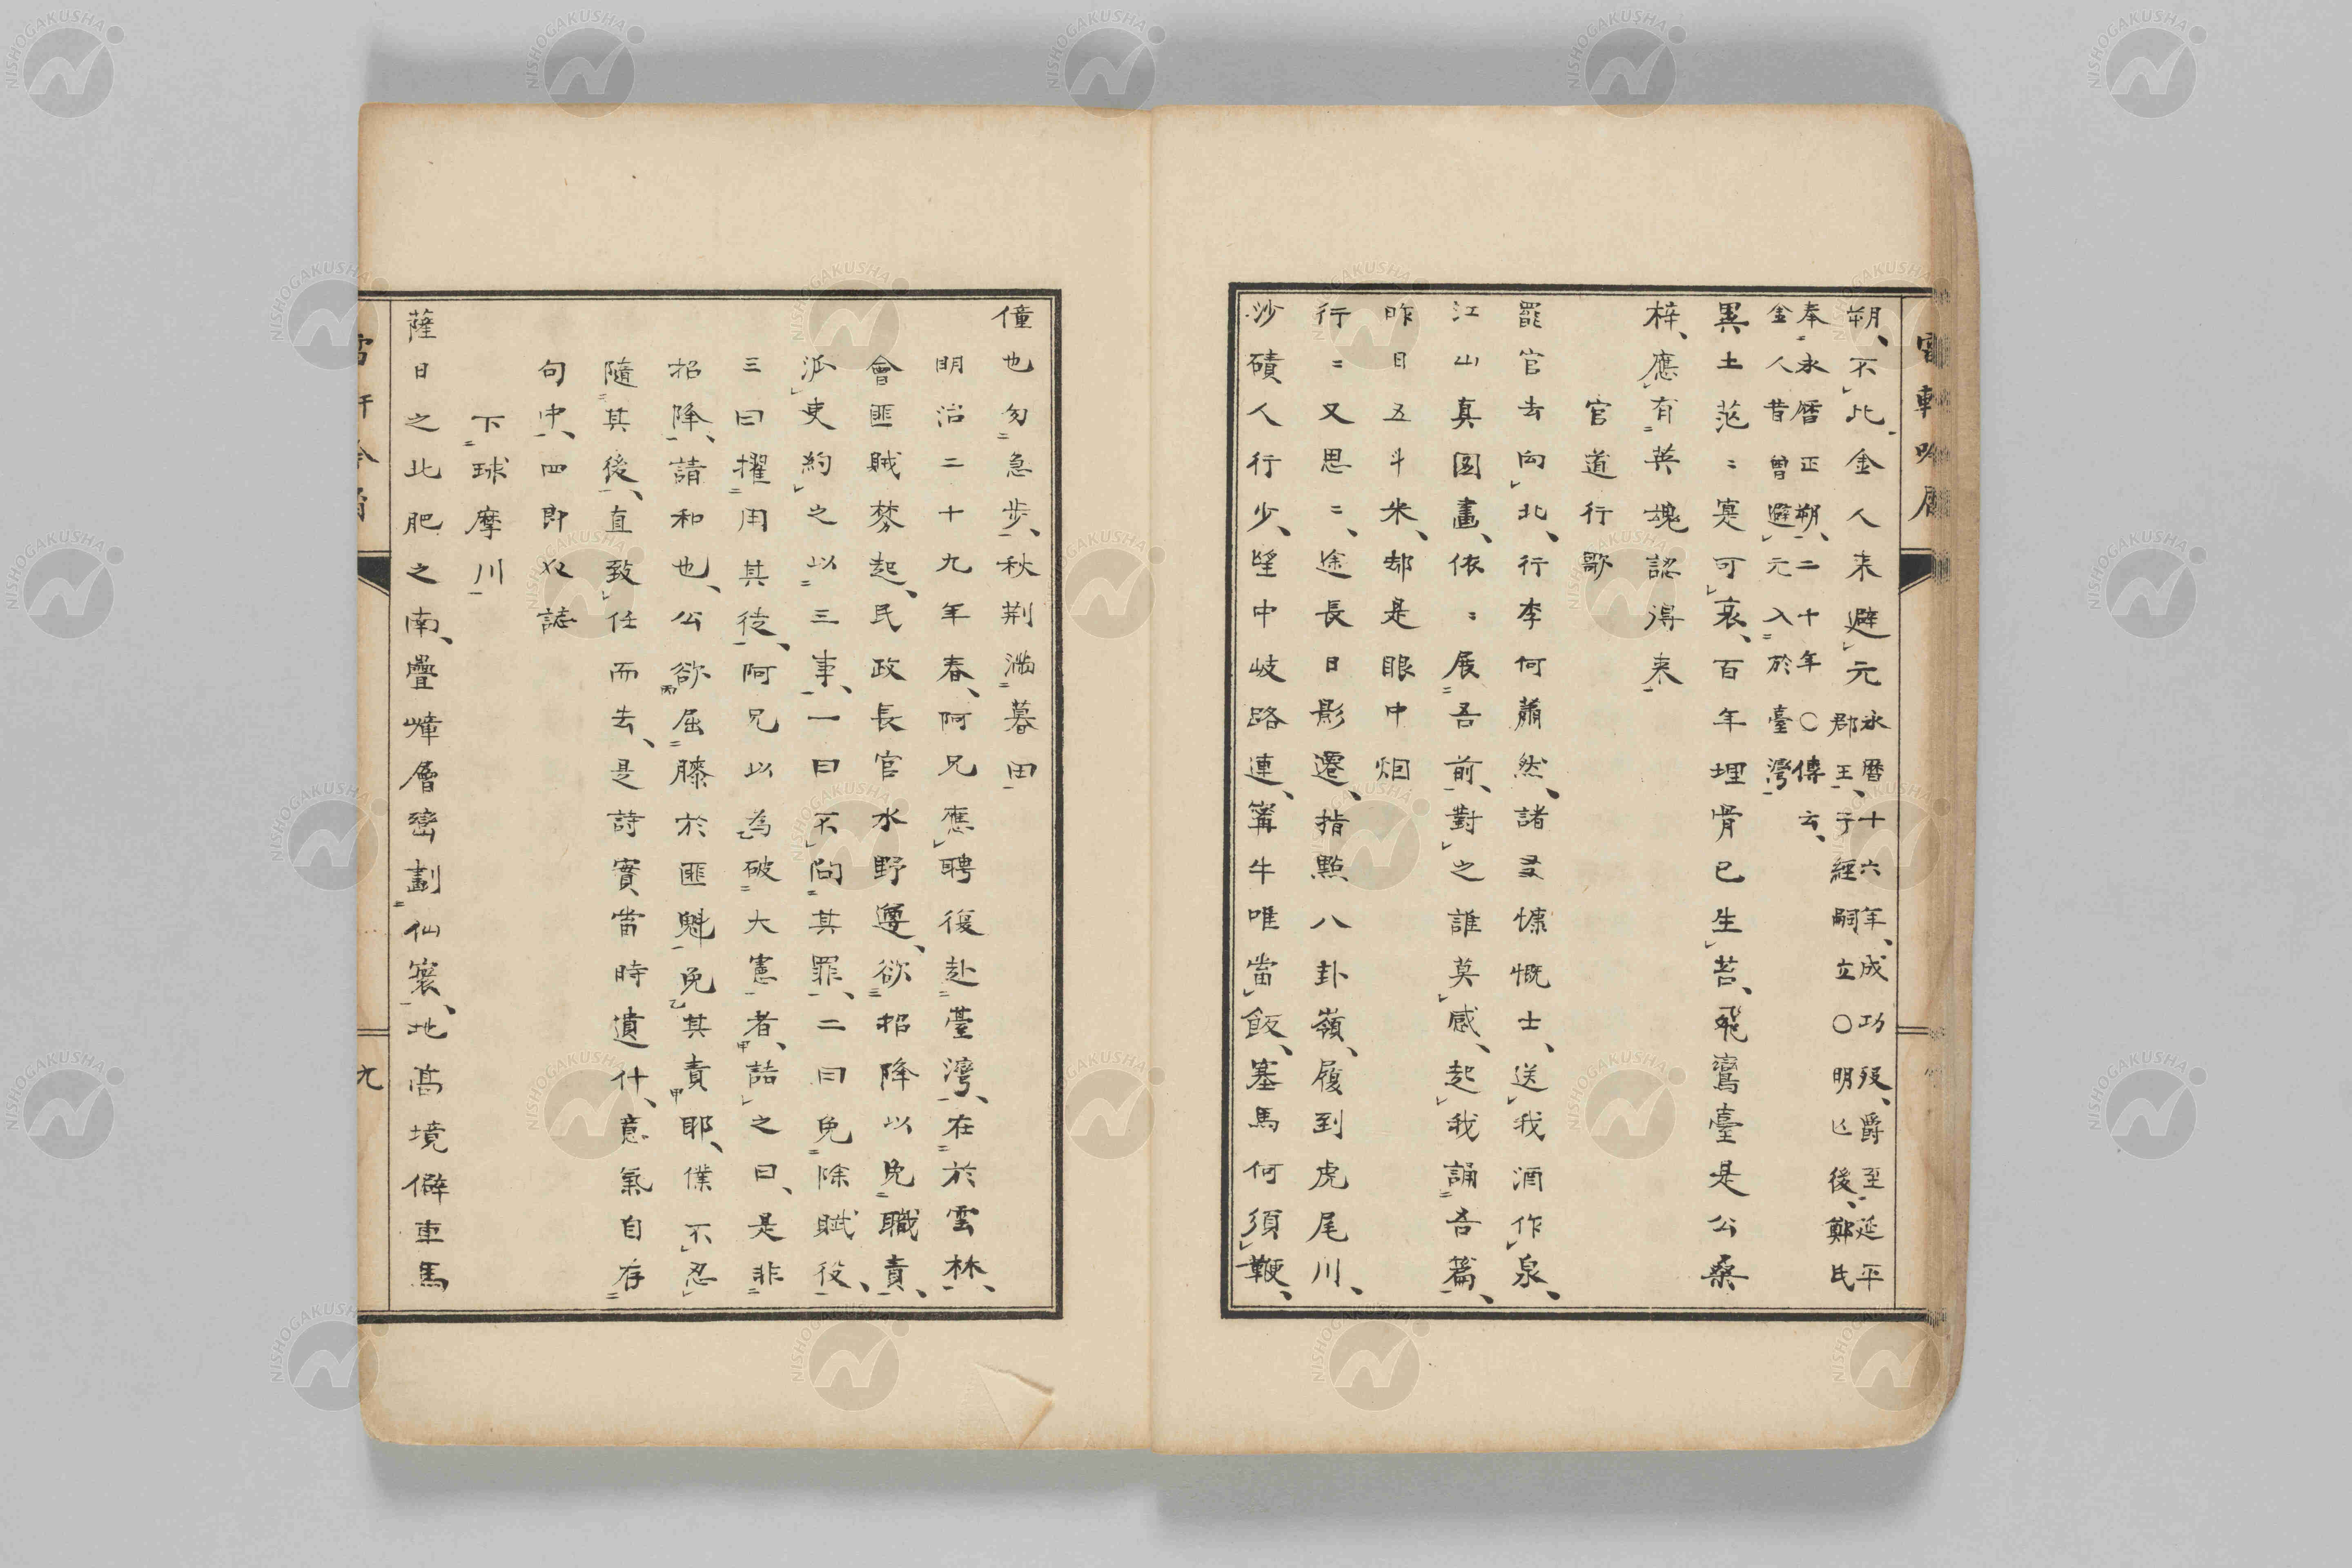 朔、不比金人来避元 永曆十六年、成功歿、爵至延平
郡王、子經嗣立〇明亡後、鄭氏
奉永曆正朔、二十年〇傳云、
金人昔曾避元入於臺灣
異土茫〻寔可哀、百年埋骨已生苔、飛鸞臺是公桑
梓、應有英魂認得来
官道行歌
罷官去向北、行李何蕭然、諸友慷慨士、送我酒作泉、
江山真圖畫、依〻展吾前、對之誰莫感、起我誦吾篇、
昨日五斗米、都是眼中烟
行〻又思〻、途長日影遷、指點八卦嶺、履到虎尾川、
沙磧人行少、望中岐路連、寗牛唯當飯、塞馬何須鞭、
僮也勿急步、秋荆満暮田
明治二十九年春、阿兄應聘復赴臺灣、在於雲林、
會匪賊棼起、民政長官水野遵、欲招降以免職責、
派吏約之以三事、一曰不問其罪、二曰免除賦役、
三曰擢用其徒、阿兄以為破大憲者、詰之曰、是非
招降、請和也、公欲屈膝於匪魁免其責耶、僕不忍
隨其後、直致任而去、是詩實當時遺什、意氣自存
句中、四郎 誌
下球摩川
薩日之北肥之南、疊嶂層巒劃仙寰、地高境僻車馬
九